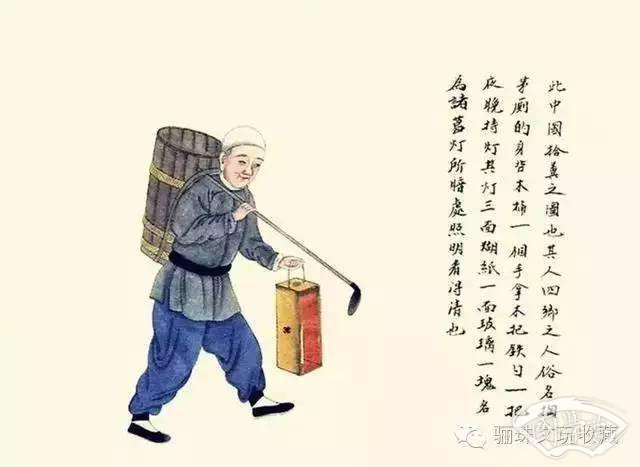 此中國拾糞之圖也其人四鄉之人俗名掏
茅厠的身背木桶一個手拿木把鉄勺一把
夜晚持灯其灯三面糊紙一面玻璃一塊名
為諸葛灯所照處照明看得清也
骊珠文玩收藏